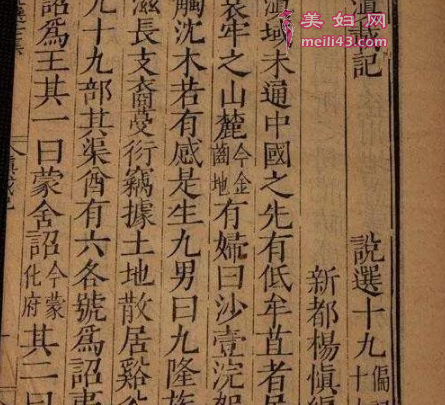 美妇网
meili43.com
滇載記 說選十九 偏
新都楊慎編
滇域未通中國之先有低牟苴者居
哀牢之山麓今金齒地有婦曰沙壹浣絮
觸沈木若有感是生九男曰九隆族
滋長支裔蔓衍竊據土地散居谿谷
九十九部其渠酋有六各號爲詔夷
詔爲王其一曰蒙舍詔今蒙化府其二曰